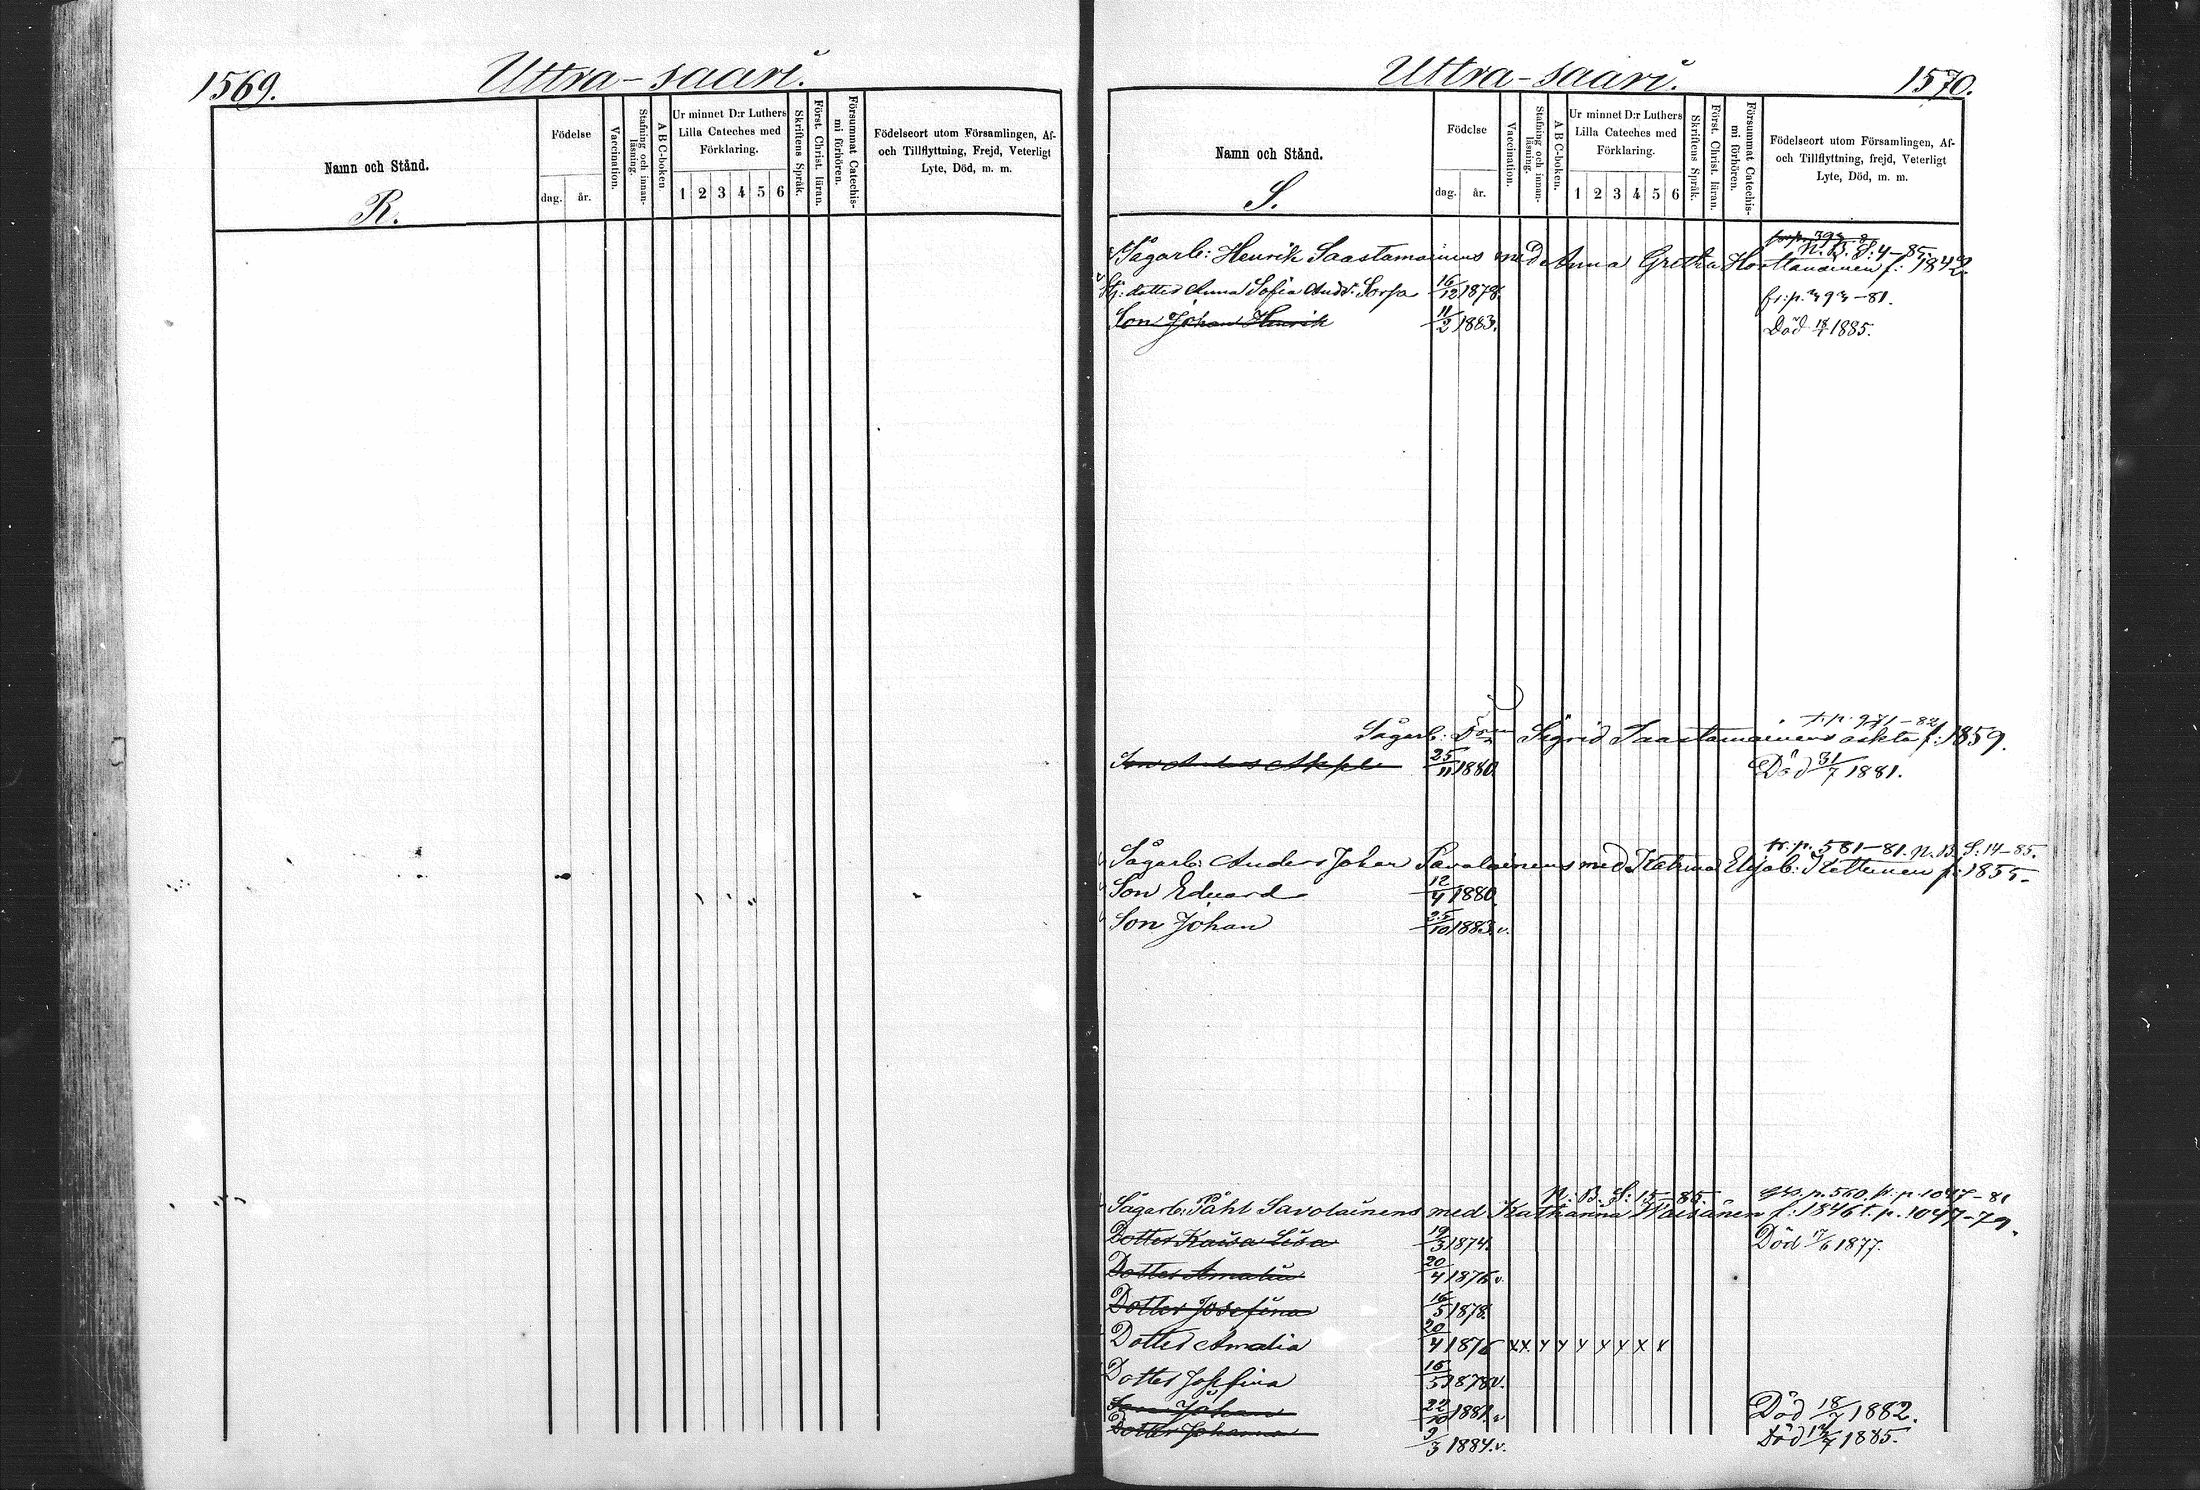 1569.
Uttra-saari.
Namn och Stånd.
R.
Födelse
dag.
år.
Vaccination.
Stafning och innanläsning.
A B C-boken.
Ur minnet D:r Luthers
Lilla Cateches med
Förklaring.
1 2 3 4 5 6
Skriftens Språk.
Först. Christ. läran.
Försummat Catechismi förhören.
Födelseort utom Församlingen, Af-
och Tillflyttning, Frejd, Veterligt
Lyte, Död, m. m.
Uttra-saari.
1570.
Namn och Stånd.
S.
Födelse
dag.
år.
Vaccination.
Stafning och innanläsning.
A B C-boken.
Ur minnet D:r Luthers
Lilla Cateches med
Förklaring.
1 2 3 4 5 6
Skriftens Språk.
Först. Christ. läran.
Försummat Catechismi förhören.
Födelseort utom Församlingen, Af-
och Tillflyttning, frejd, Veterligt
Lyte, Död, m. m.
N. B. S: 4-85.
Sågarb: Henrik Saastamoinens med Anna Gretha f: 1842.
dotter Anna Sofia Andr. 16/12 1878. fr: p. 393-81.
Son Johan Henrik 11/2 1883. Död 18/1 1885.
t. p. 971-82
Sågarb: Sigrid Saastamoinens oäkta f: 1859.
Son Anders 25/11 1880. Död 31/7 1881.
fr. p. 581-81. N. B. S: 14-85.
Sågarb: Anders Johan Savolainens med Katrina Elisab: Kettunen f: 1855
Son Eduard 12/4 1880.
Son Johan 25/10 1883. v.
N. B. S: 15-85. p. 560. fr. p. 1047-81
Sågarb: Påhl Savolainens med Katharina f: 1846 t. p. 1047-79.
Dotter Kaisa Lisa 19/3 1874. Död 17/6 1877.
Dotter Amalia 20/4 1876 v.
Dotter Josefina 16/5 1878.
Dotter Amalia 20/4 1876 x x x x x x x x x
Dotter Josefina 16/5 1878 v.
Son Johan 22/10 1881. v Död 18/7 1882.
Dotter Johanna 9/3 1884. v. Död 1885.